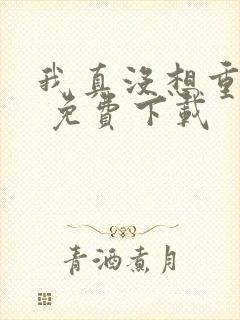 我真没想重
免費下載
青酒煮月